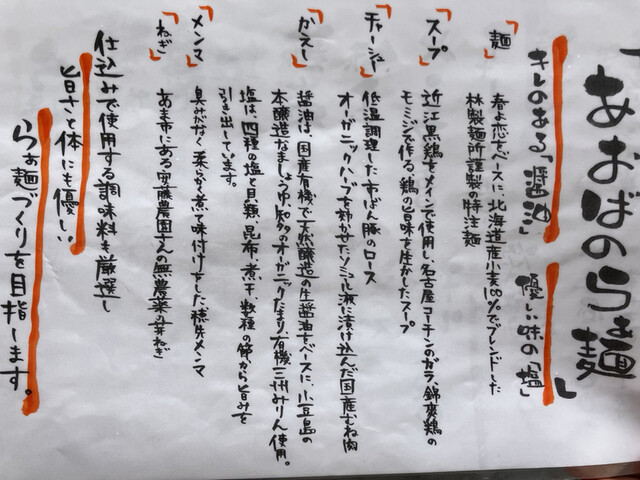 「あおばのらぁ麺」
キレのある「醤油」 優しい味の「塩」
「麺」
春よ恋をベースに、北海道産小麦100%でブレンドした
林製麺所謹製の特注麺
「スープ」
近江黒鶏をメインで使用し、名古屋コーチンのガラ、錦爽鶏の
モミジで作る、鶏の旨味を生かしたスープ
「チャーシュー」
低温調理したすばん豚のロース
オーガニックハーブを効かせたソミュル液に漬け込んだ国産むね肉
「かえし」
醤油は、国産有機で天然醸造の生醤油をベースに、小豆島の
本醸造なましょうゆ、知多のオーガニックなたまり、有機三州みりん使用。
塩は、四種の塩と貝類、昆布、煮干、数種の節から旨みを
引き出しています。
「メンマ」
臭みがなく柔らかく煮て味付けをした穂先メンマ
「ねぎ」
あま市にある農園さんの無農薬の芽ねぎ
仕込みで使用する調味料を厳選し
旨さと体にも優しい
らぁ麺づくりを目指します。